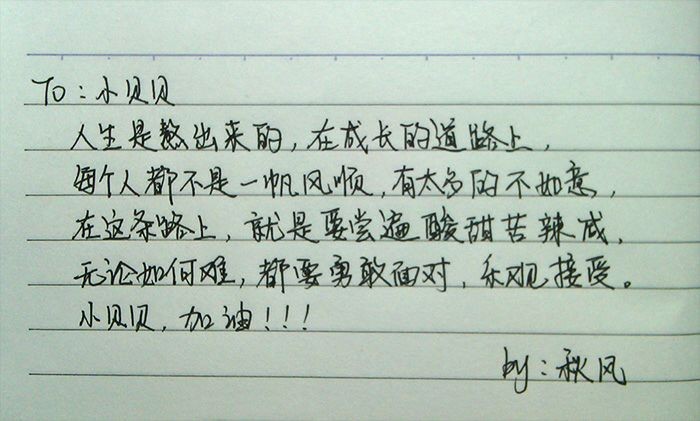 To：小贝贝
人生是熬出来的，在成长的道路上，
每个人都不是一帆风顺，有太多的不如意，
在这条路上，就是要尝遍酸甜苦辣咸，
无论如何难，都要勇敢面对，乐观接受。
小贝贝，加油！！！
by：秋风